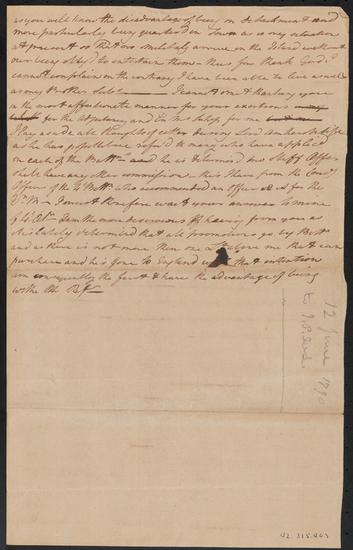 as you will know the disadvantage of being on detachment and
more particularly being quartered in Town as is my situation
at present as that no military arrive on the Island without
our being oblig'd to entertain them. Now for thank God, I
cannot complain on the contrary I have been able to live as well
as my Brother Subs — I return & thank you
in the most affectionate manner for your exertions
for the Adjutancy and for me
I lay aside all thoughts of either during Lord
as he has positively refus'd to many who have applied
in each of the Battns and he is determin'd no Staff Officer
shall have any other commission this I have from the Comdg
Officer of the Battn who recommended an Officer as for the
I must therefore wait your answer to mine
of I am the more desirous of hearing from you as
it is lately determin'd that all promotions go by Battn
and as there is not more than one before me that can
purchase and he is gone to England with that intention
am consequently the first & have the advantage of being
with the Bn —
12 June 1790
to
42.315.403